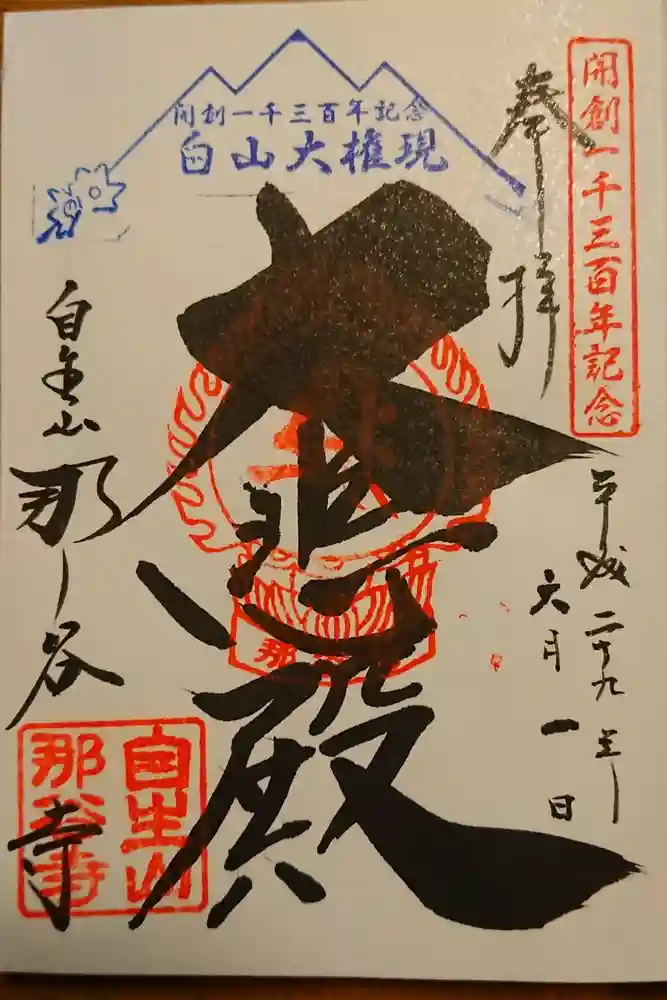 開創一千三百年記念
白山大権現
開創一千三百年記念
奉拝
平成二十九年
六月一日
大悲殿
自生山
那谷寺
自生山
那谷寺